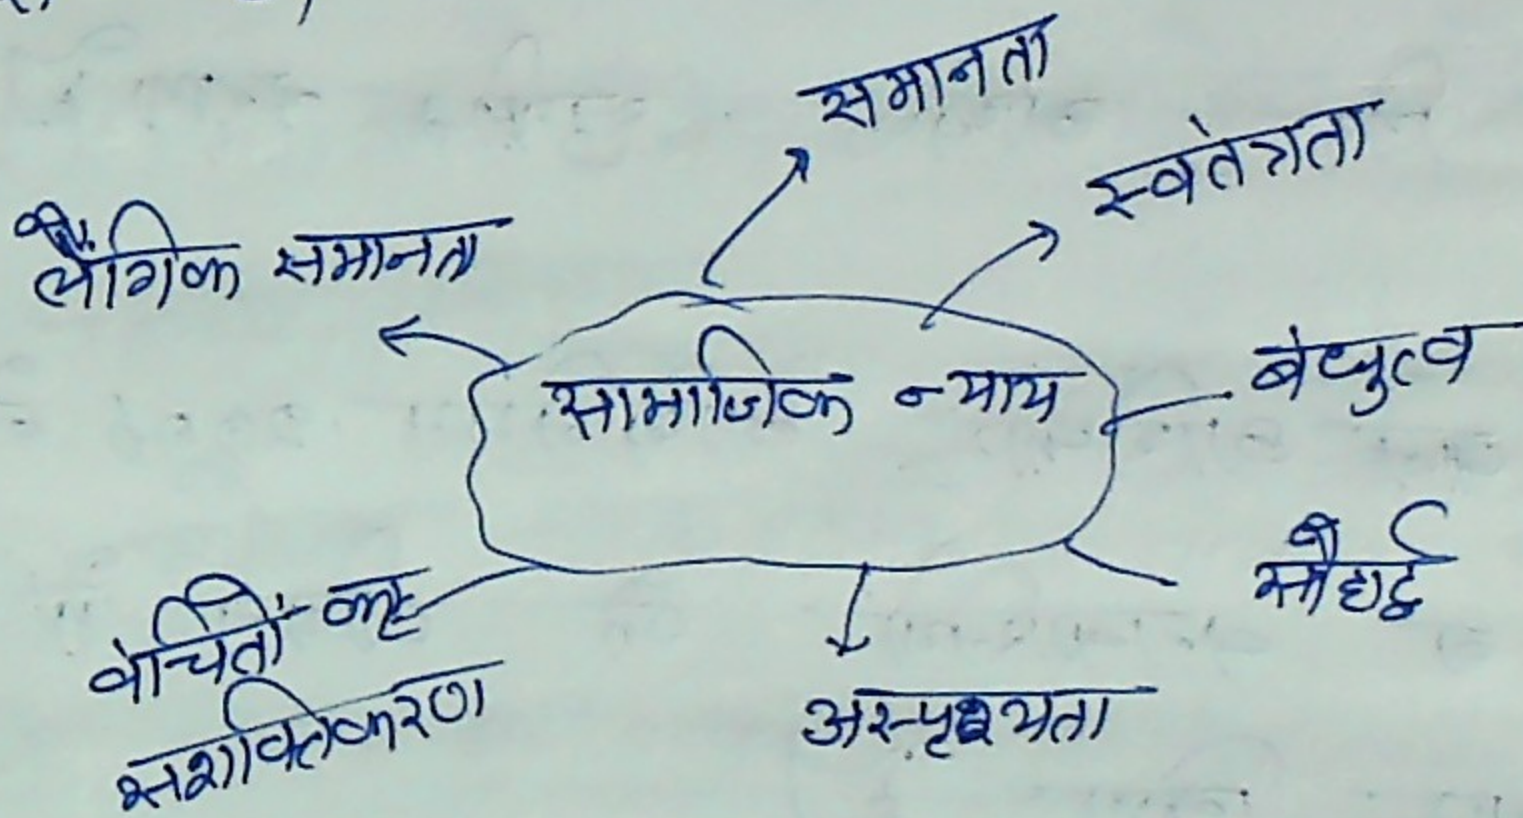 समानता
स्वतंत्रता
लैंगिक समानता
सामाजिक न्याय
बंधुत्व
सौहार्द्र
वंचितों का
सशक्तिकरण
अस्पृश्यता